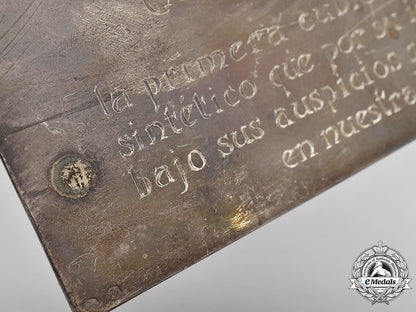 la primera cub
sintético que por
bajo sus auspicios
en nuestra
eMedals